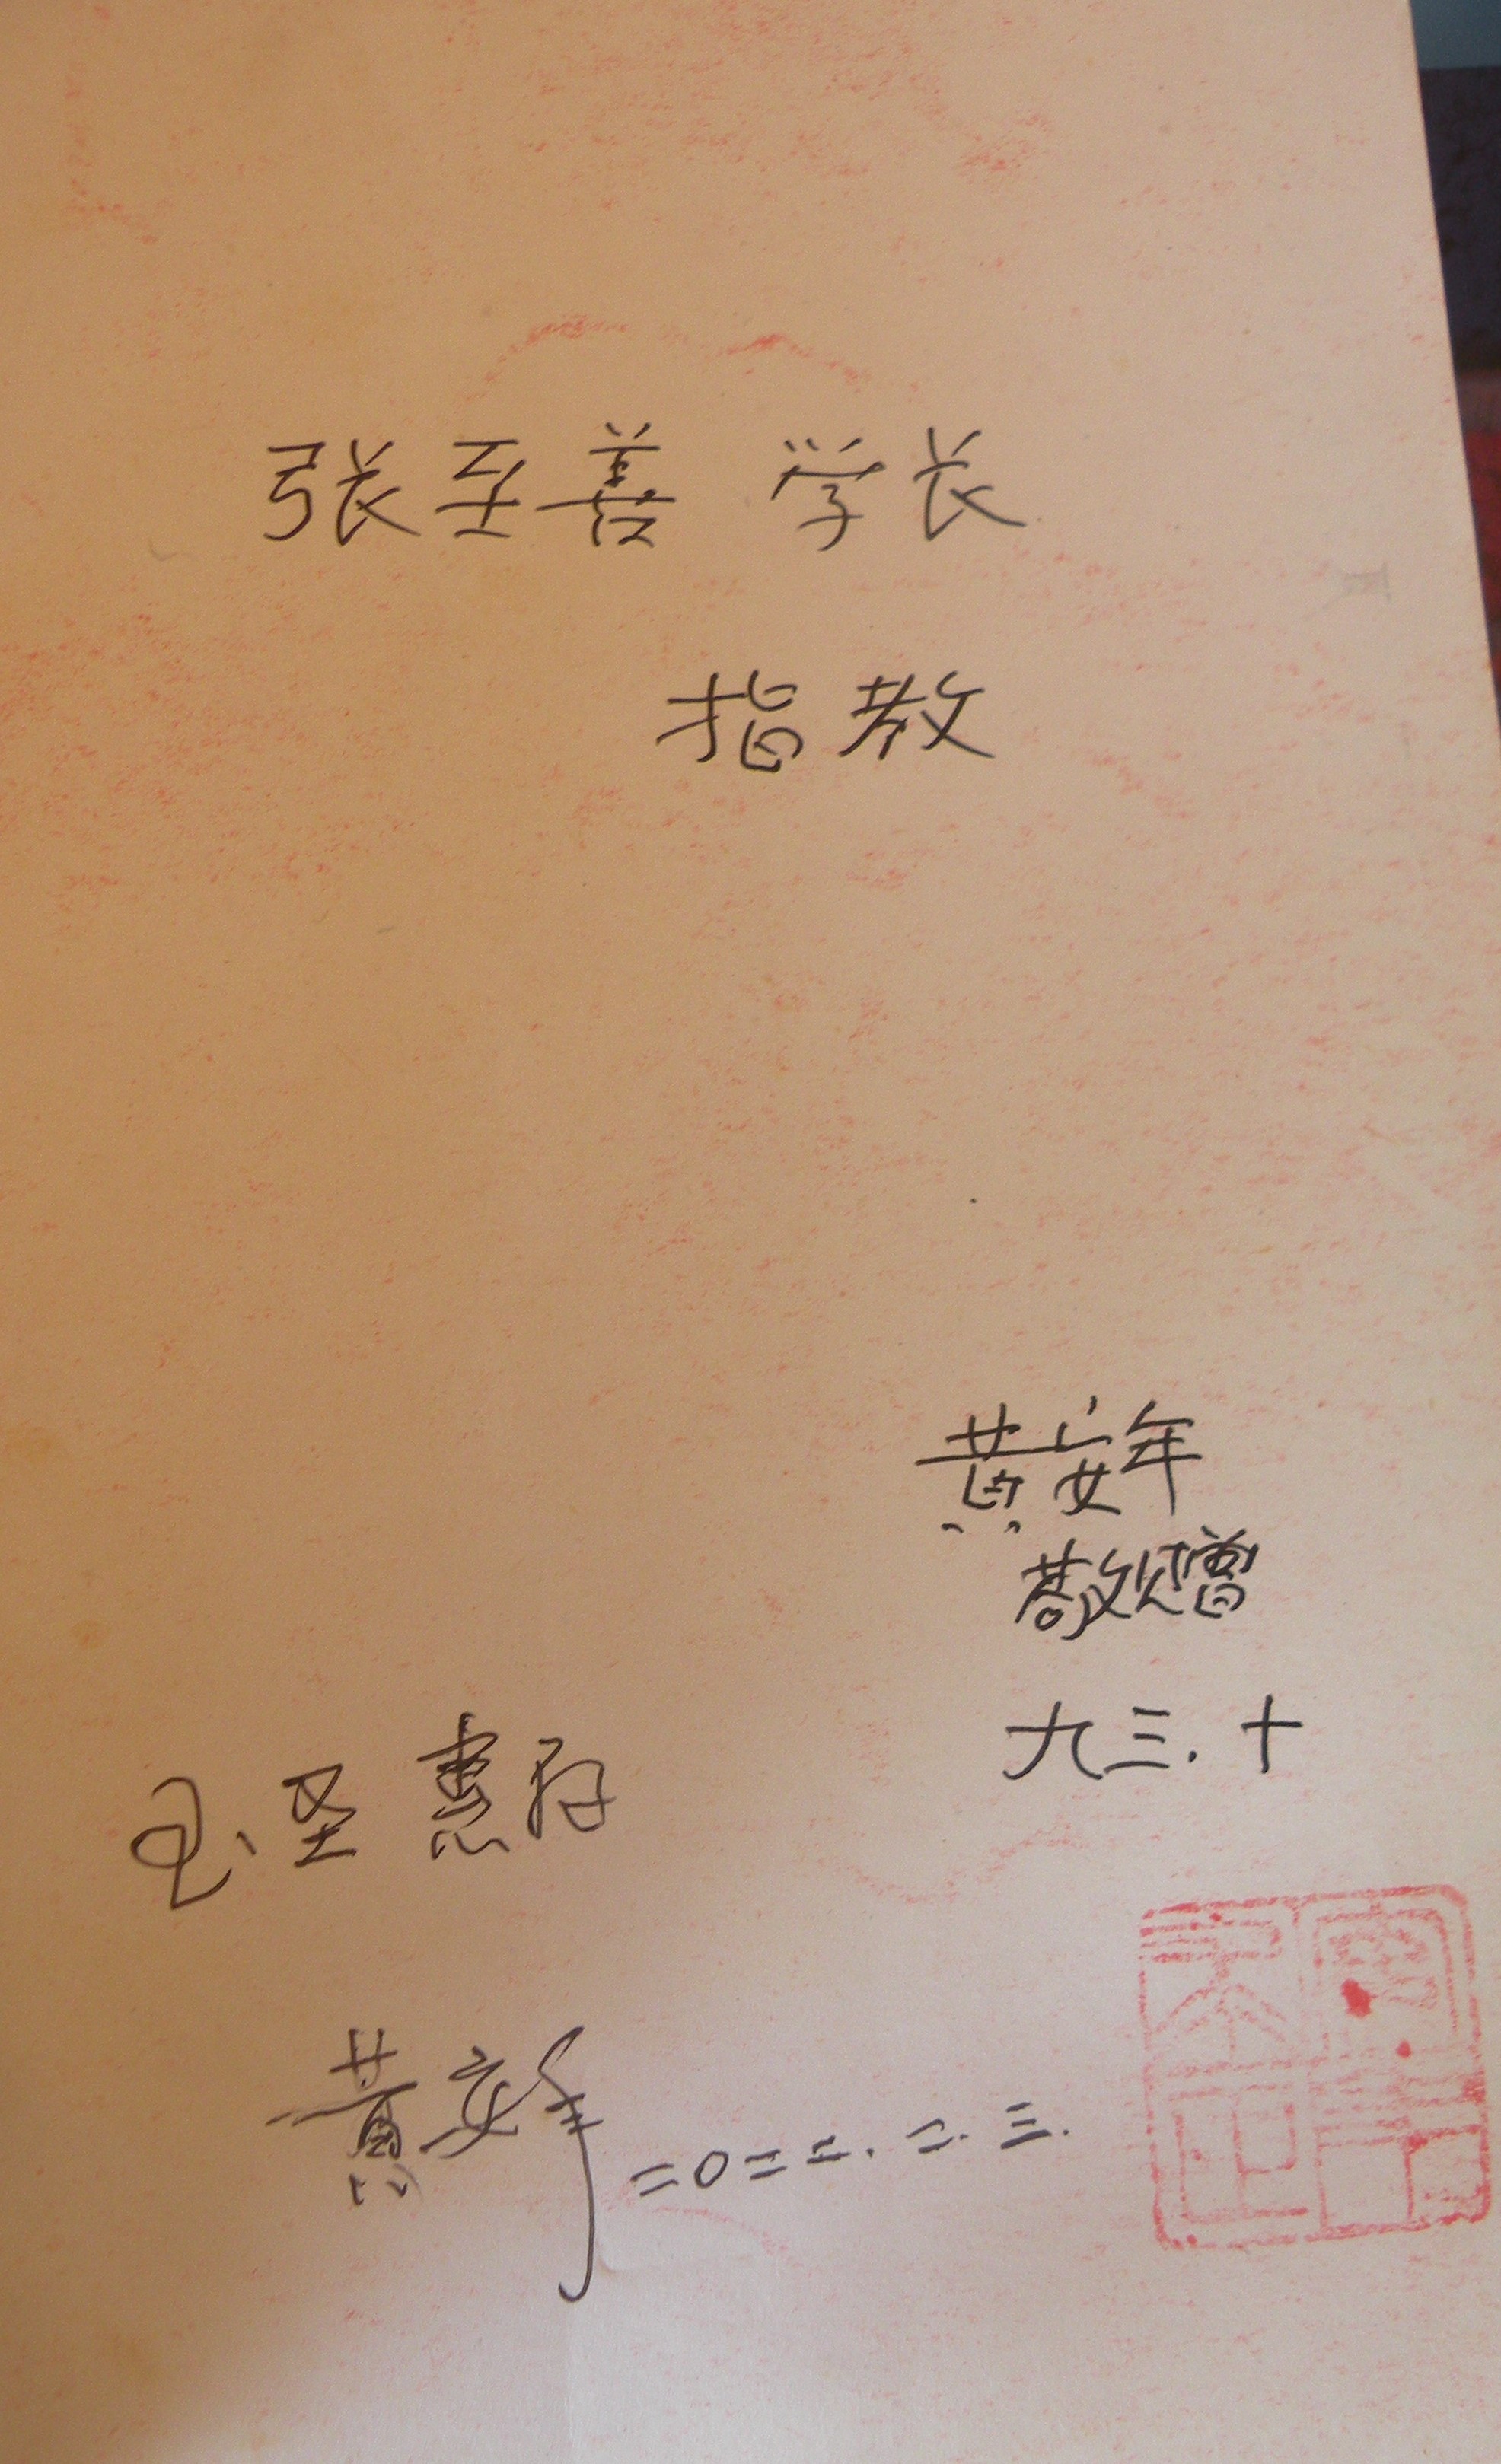 张至善 学长
指教
黄安年
敬赠
九三.十
玉圣惠存
黄安年 二0二二.二.三.